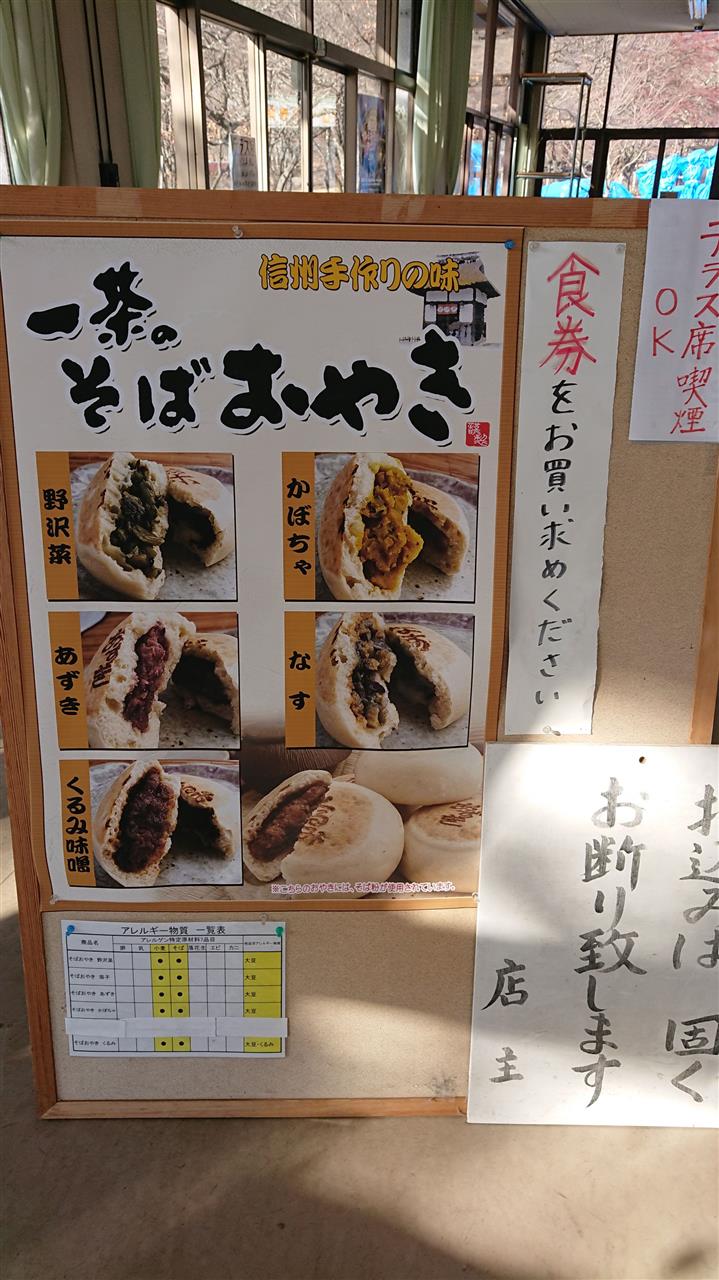 信州手作りの味
一茶の
そばおやき
野沢菜
かぼちゃ
あずき
なす
くるみ味噌
※こちらのおやきには、そば粉が使用されています。
食券をお買い求めください
テラス席喫煙
OK
持込みは 固く
お断り致します
店主
アレルギー物質 一覧表
商品名 アレルゲン特定原材料7品目
卵 乳 小麦 そば 落花生 エビ カニ
そばおやき 野沢菜 ● ● 大豆
そばおやき 茄子 ● ● 大豆
そばおやき あずき ● ● 大豆
そばおやき かぼちゃ ● ● 大豆
そばおやき くるみ ● ● 大豆・くるみ